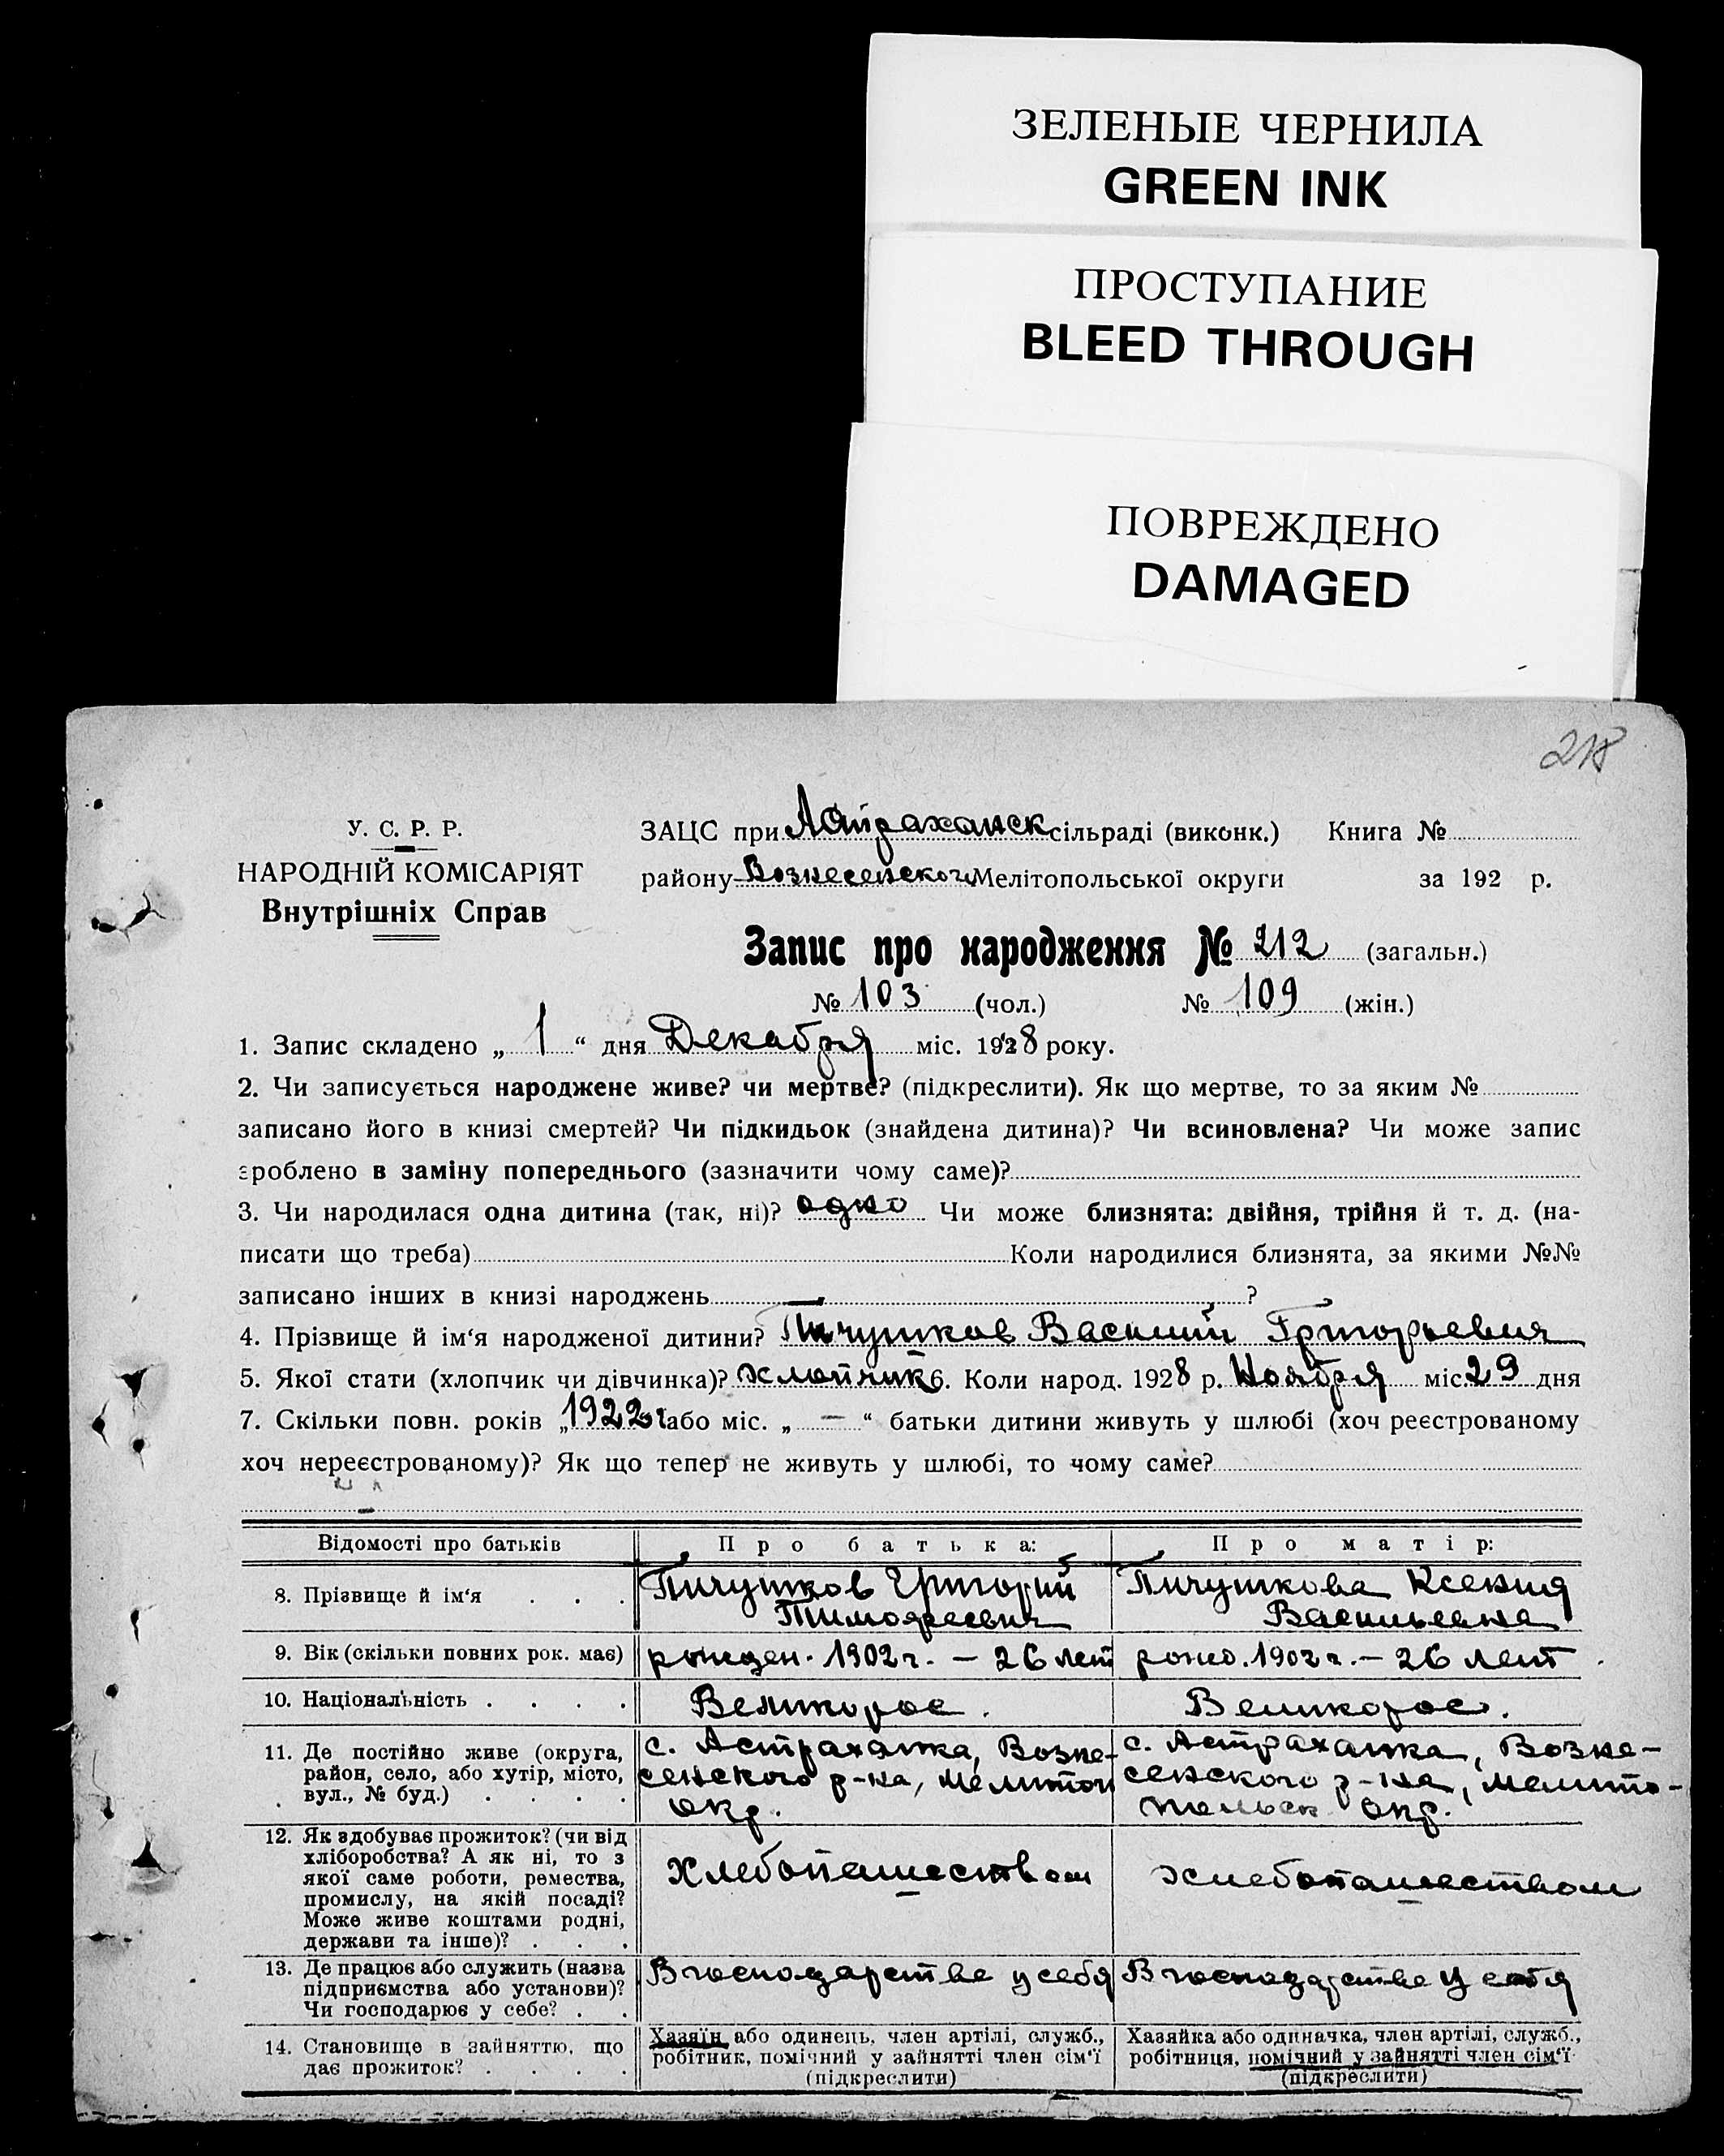 ЗЕЛЕНЫЕ ЧЕРНИЛА
GREEN INK
ПРОСТУПАНИЕ
BLEED THROUGH
ПОВРЕЖДЕНО
DAMAGED
218
У. С. Р. Р.
НАРОДНІЙ КОМІСАРІЯТ
Внутрішніх Справ
ЗАЦС при Астраханск сільраді (виконк.) Книга №
району Вознесенского Мелітопольської округи за 192 р.
Запис про народження № 212 (загальн.)
№ 103 (чол.) № 109 (жін.)
1. Запис складено „ 1 “ дня Декабря міс. 1928 року.
2. Чи записується народжене живе? чи мертве? (підкреслити). Як що мертве, то за яким №
записано його в книзі смертей? Чи підкидьок (знайдена дитина)? Чи всиновлена? Чи може запис
зроблено в заміну попереднього (зазначити чому саме)?
3. Чи народилася одна дитина (так, ні)? одно Чи може близнята: двійня, трійня й т. д. (на-
писати що треба) Коли народилися близнята, за якими №№
записано інших в книзі народжень — ?
4. Прізвище й ім‘я народженої дитини? Пичушков Василий Григорьевич
5. Якої стати (хлопчик чи дівчинка)? хлопчик 6. Коли народ. 1928 р. Ноября міс. 29 дня
7. Скільки повн. років „ 1922 г або міс. „ — “ батьки дитини живуть у шлюбі (хоч реєстрованому
хоч нереєстрованому)? Як що тепер не живуть у шлюбі, то чому саме?
—
Відомості про батьків Про батька: Про матір:
8. Прізвище й ім‘я . . . Пичушков Григорий Тимофеевич Пичушкова Ксения Васильевна
9. Вік (скільки повних рок. має) рожден. 1902 г. – 26 лет рожд. 1902 г. – 26 лет
10. Національність . . . . Великорос. Великорос.
11. Де постійно живе (округа, с. Астраханка, Возне- с. Астраханка, Возне-
район, село, або хутір, місто, сенского р-на, Мелитоп сенского р-на, Мелито-
вул., № буд.) . . . . окр. польск окр.
12. Як здобуває прожиток? (чи від
хліборобства? А як ні, то з
якої саме роботи, ремества, Хлебопашеством хлебопашеством
промислу, на якій посаді?
Може живе коштами родні,
держави та інше)? . . .
13. Де працює або служить (назва В господарстве у себя В господарстве у себя
підприємства або установи)?
Чи господарює у себе? . .
14. Становище в зайняттю, що Хазяїн або одинець, член артілі, служб., Хазяйка або одиначка, член артілі, служб.,
дає прожиток? . . . . робітник, помічний у зайнятті член сім‘ї робітниця, помічний у зайнятті член сім‘ї
(підкреслити) (підкреслити)